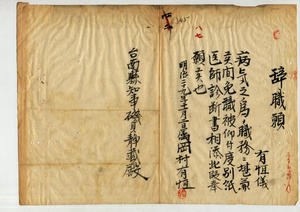 辞職願
有恒儀
病気之為メ職務ニ堪兼
候間免職被仰付度別紙
医師診断書相添此段奉
願候也
明治三十年十二月二日 岡村有恒
台南縣知事磯貝静蔵殿
八七